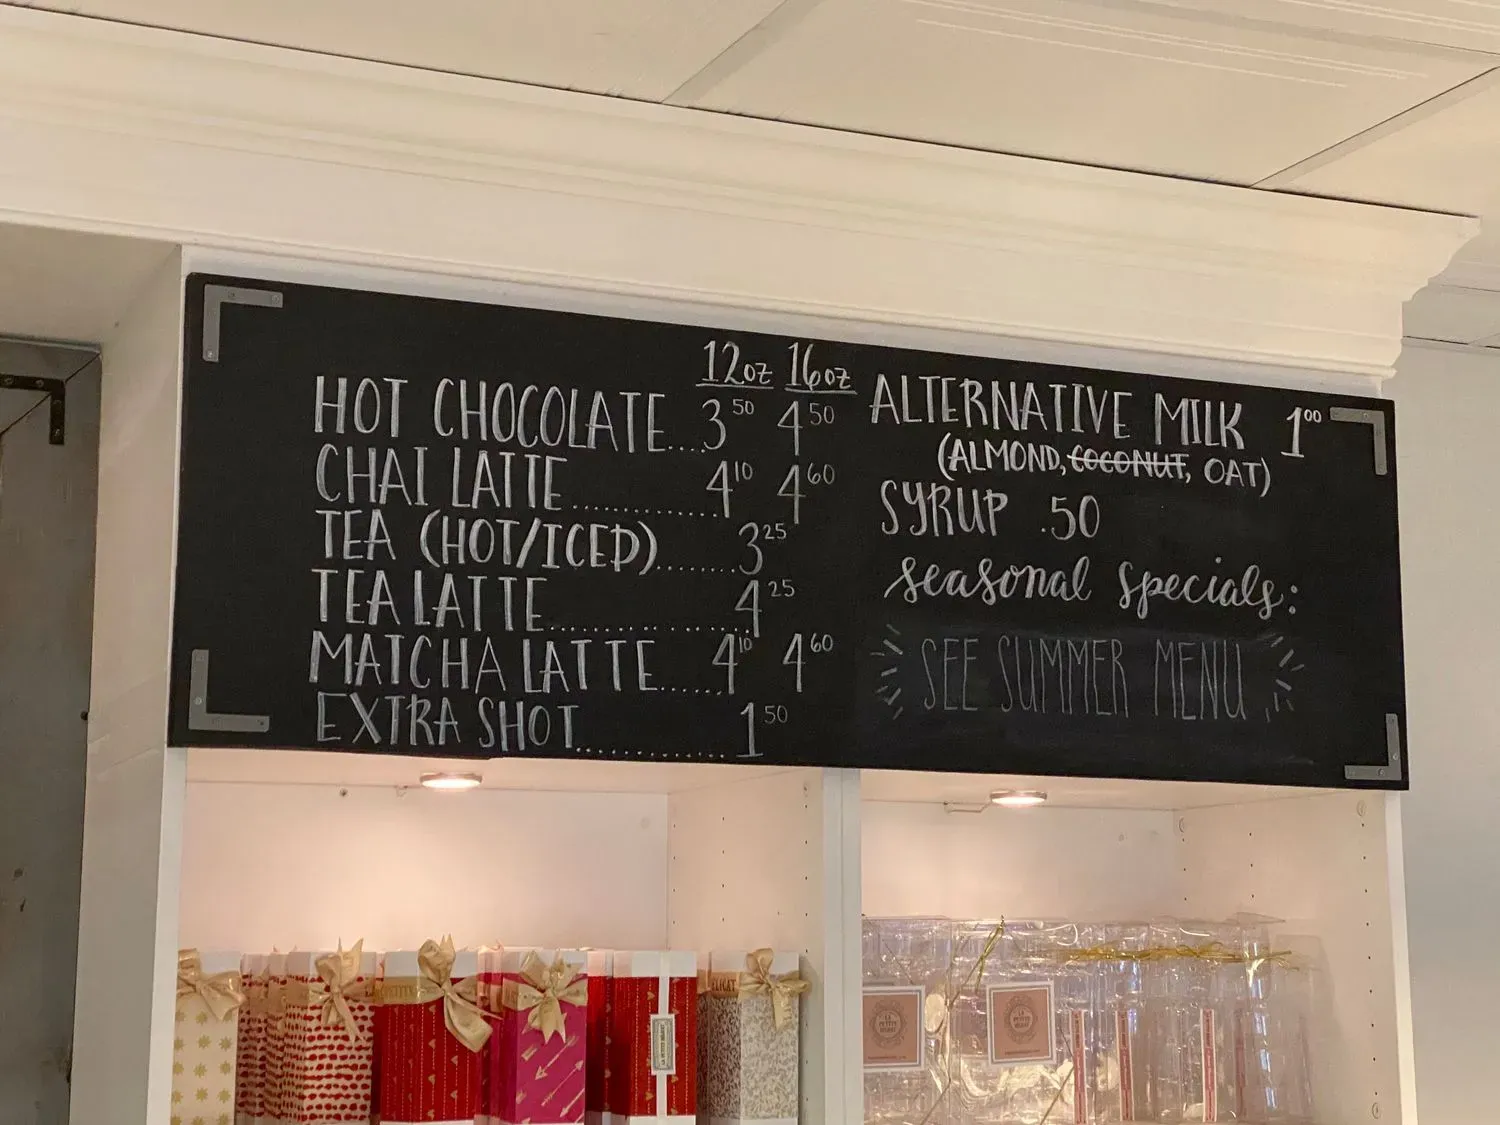 12oz 16oz
HOT CHOCOLATE.... 3⁵⁰ 4⁵⁰
CHAI LATTE............... 4¹⁰ 4⁶⁰
TEA (HOT/ICED)........ 3²⁵
TEA LATTE.................. 4²⁵
MATCHA LATTE...... 4¹⁰ 4⁶⁰
EXTRA SHOT............. 1⁵⁰
ALTERNATIVE MILK 1⁰⁰
(ALMOND, COCONUT, OAT)
SYRUP .50
seasonal specials:
SEE SUMMER MENU